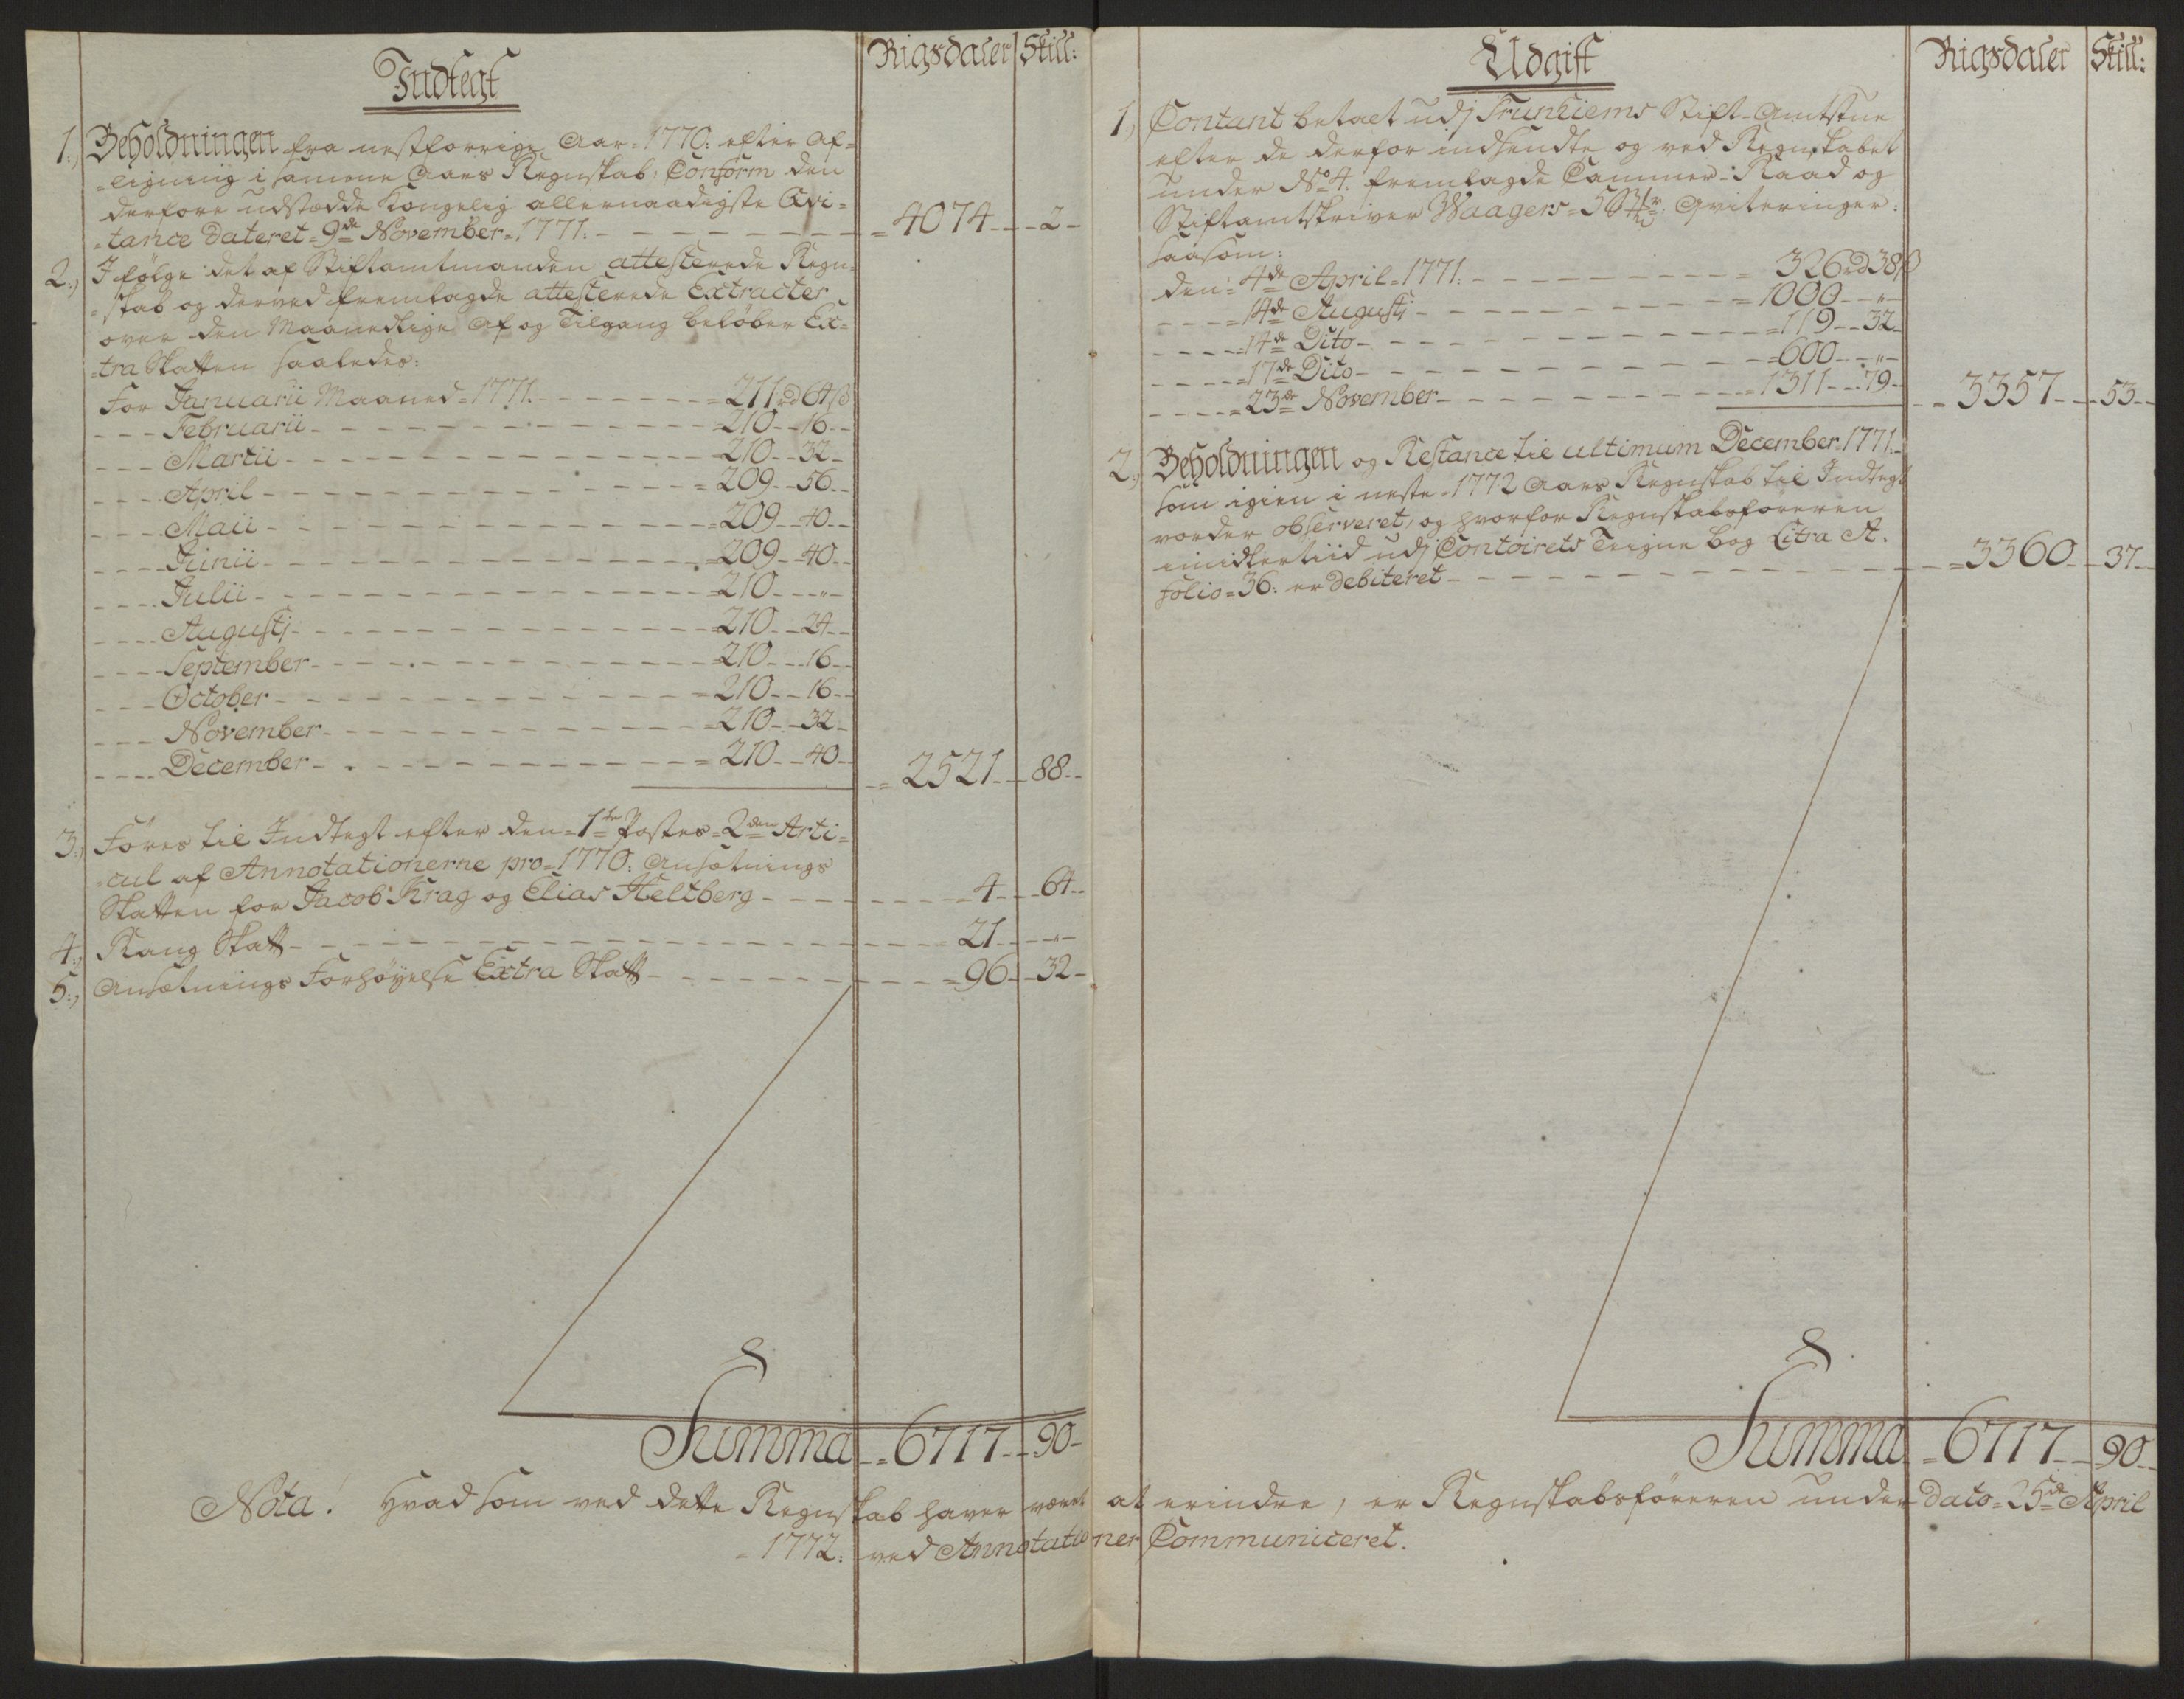 Indtegt
Rigsdaler Skill:
1.) Beholdningen fra nestforrige Aar=1770: efter Af=
=ligning i samme Aars Regnskab, Conform den
derfore udstædde Kongelig allernaadigste Qvi=
=tance dateret=9de November=1771. =4074 2
2.) I følge det af Stiftamtmanden attesterede Regn=
=skab og derved fremlagde attesterede Extracter
over den Maanedlige Af og Tilgang beløber Ex=
=tra Skatten saaledes:
For Januarii Maaned=1771. =211 rd 64 ß
Februarii =210 16
Martii =210 32
April =209 56
Maii =209 40
Junii =209 40
Julii =210 "
Augustj =210 24
September =210 16
October =210 16
November =210 32
December =210 40 =2521 88
3.) Føres til Indtegt efter den=1te Postes=2den Arti=
=cul af Annotationerne pro=1770: Ansætnings
Skatten for Jacob Krag og Elias Heltberg 4 64
4.) Rang Skatt =21 "
5.) Ansætnings Forhøyelse Extra Skatt =96 32
Summa =6717 90
Udgift
Rigsdaler Skill:
1.) Contant betalt udj Trunhiems Stift-Amtstue
efter de derfor indsendte og ved Regnskabet
under No 4. fremlagde Cammer-Raad og
Stiftamtskriver Waagers=5 Qviteringer:
saasom:
den=4de April=1771. =326 rd 38 ß
=14de Augustj =1000 "
=14de Dito =119 32
=17de Dito =600 "
=23de November =1311 79 =3357 53
2.) Beholdningen og Restance til ultimum December 1771.
som igien i neste=1772 Aars Regnskab til Indtegt
vorder observeret, og hvorfor Regnskabsføreren
imidlertiid udj Contoirets Teigne bog Litra A.
Folio=36: er debiteret =3360 37
Summa =6717 90
Nota! Hvad som ved dette Regnskab haver været at erindre, er Regnskabsføreren under dato=25de April
=1772: ved Annotationer Communiceret.